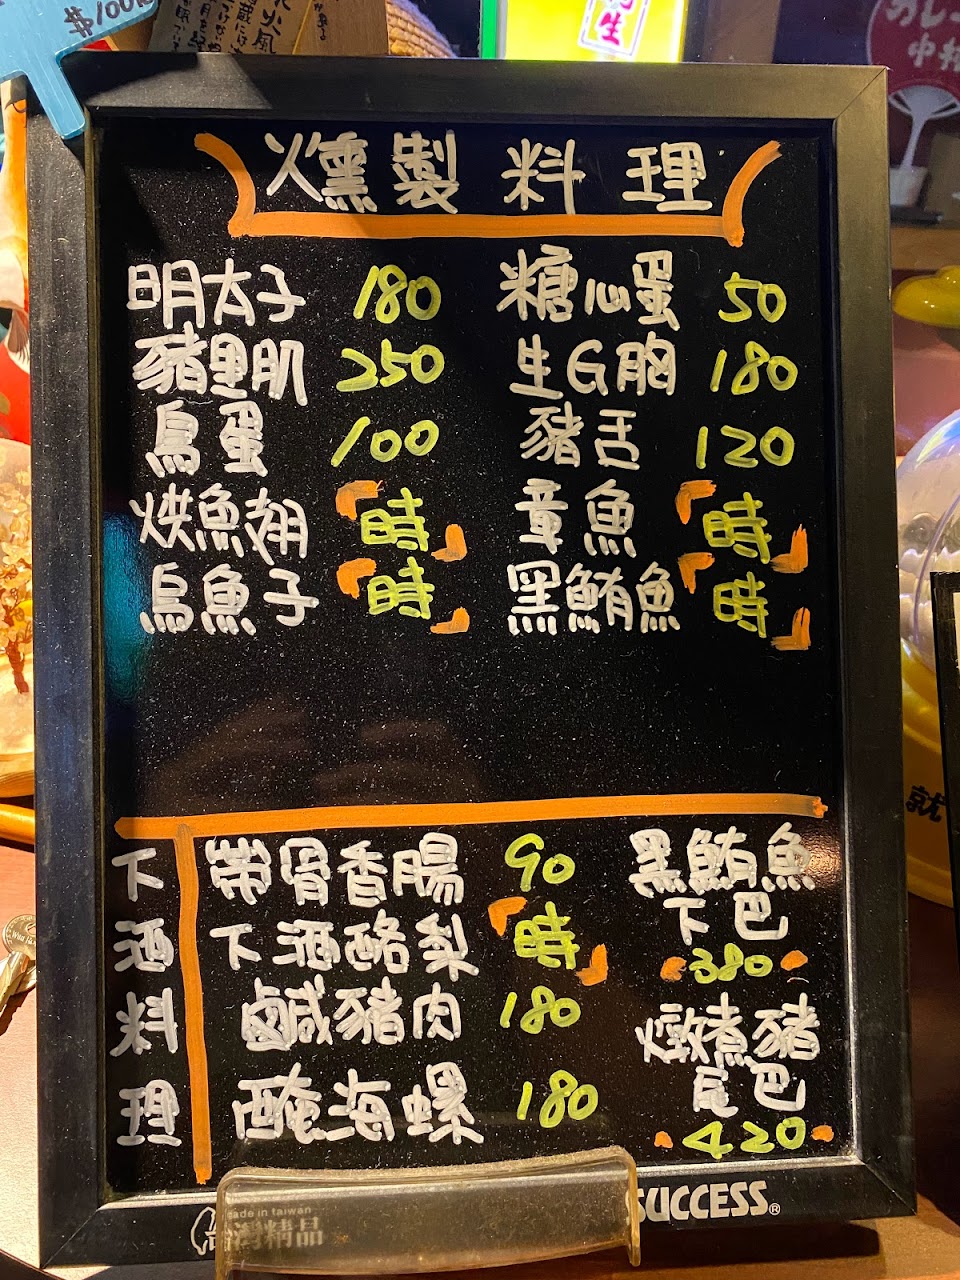 $100
燻製料理
明太子 180 糖心蛋 50
豬里肌 250 生G胸 180
鳥蛋 100 豬舌 120
烘魚翅 「時」 章魚 「時」
烏魚子 「時」 黑鮪魚 「時」
下酒料理
帶骨香腸 90
下酒酪梨 「時」
鹹豬肉 180
醃海螺 180
黑鮪魚
下巴
380
燉煮豬
尾巴
420
made in taiwan
台灣精品
SUCCESS®
就